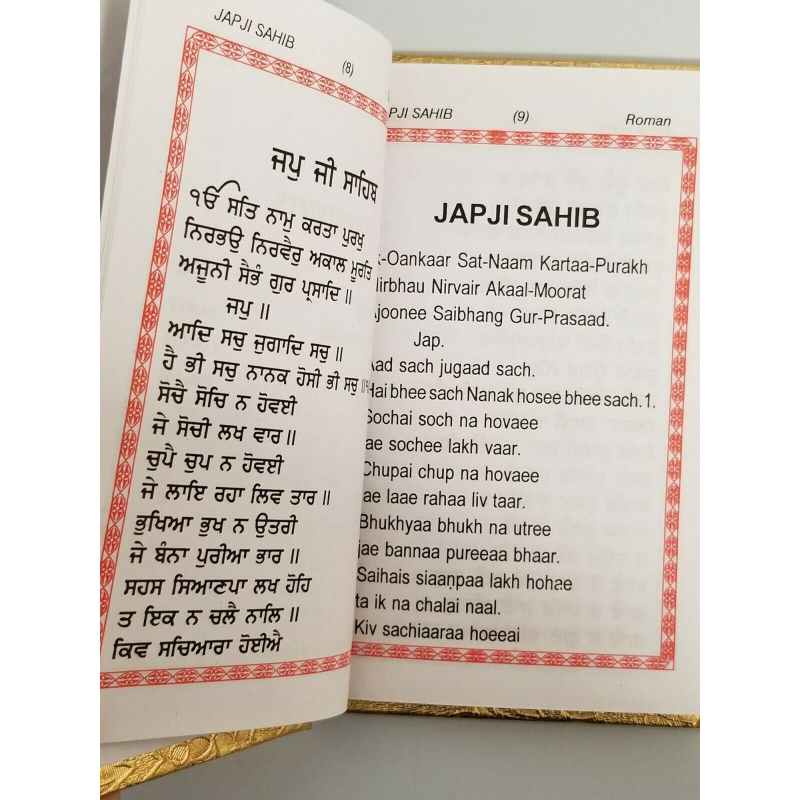 JAPJI SAHIB (8)
ਜਪੁ ਜੀ ਸਾਹਿਬ
ੴ ਸਤਿ ਨਾਮੁ ਕਰਤਾ ਪੁਰਖੁ
ਨਿਰਭਉ ਨਿਰਵੈਰੁ ਅਕਾਲ ਮੂਰਤਿ
ਅਜੂਨੀ ਸੈਭੰ ਗੁਰ ਪ੍ਰਸਾਦਿ ॥
ਜਪੁ ॥
ਆਦਿ ਸਚੁ ਜੁਗਾਦਿ ਸਚੁ ॥
ਹੈ ਭੀ ਸਚੁ ਨਾਨਕ ਹੋਸੀ ਭੀ ਸਚੁ ॥੧
ਸੋਚੈ ਸੋਚਿ ਨ ਹੋਵਈ
ਜੇ ਸੋਚੀ ਲਖ ਵਾਰ ॥
ਚੁਪੈ ਚੁਪ ਨ ਹੋਵਈ
ਜੇ ਲਾਇ ਰਹਾ ਲਿਵ ਤਾਰ ॥
ਭੁਖਿਆ ਭੁਖ ਨ ਉਤਰੀ
ਜੇ ਬੰਨਾ ਪੁਰੀਆ ਭਾਰ ॥
ਸਹਸ ਸਿਆਣਪਾ ਲਖ ਹੋਹਿ
ਤ ਇਕ ਨ ਚਲੈ ਨਾਲਿ ॥
ਕਿਵ ਸਚਿਆਰਾ ਹੋਈਐ
PJI SAHIB (9) Roman
JAPJI SAHIB
k-Oankaar Sat-Naam Kartaa-Purakh
Nirbhau Nirvair Akaal-Moorat
Ajoonee Saibhang Gur-Prasaad.
Jap.
Aad sach jugaad sach.
Hai bhee sach Nanak hosee bhee sach.1.
Sochai soch na hovaee
jae sochee lakh vaar.
Chupai chup na hovaee
jae laae rahaa liv taar.
Bhukhyaa bhukh na utree
jae bannaa pureeaa bhaar.
Saihais siaaṇpaa lakh hohae
ta ik na chalai naal.
Kiv sachiaaraa hoeeai